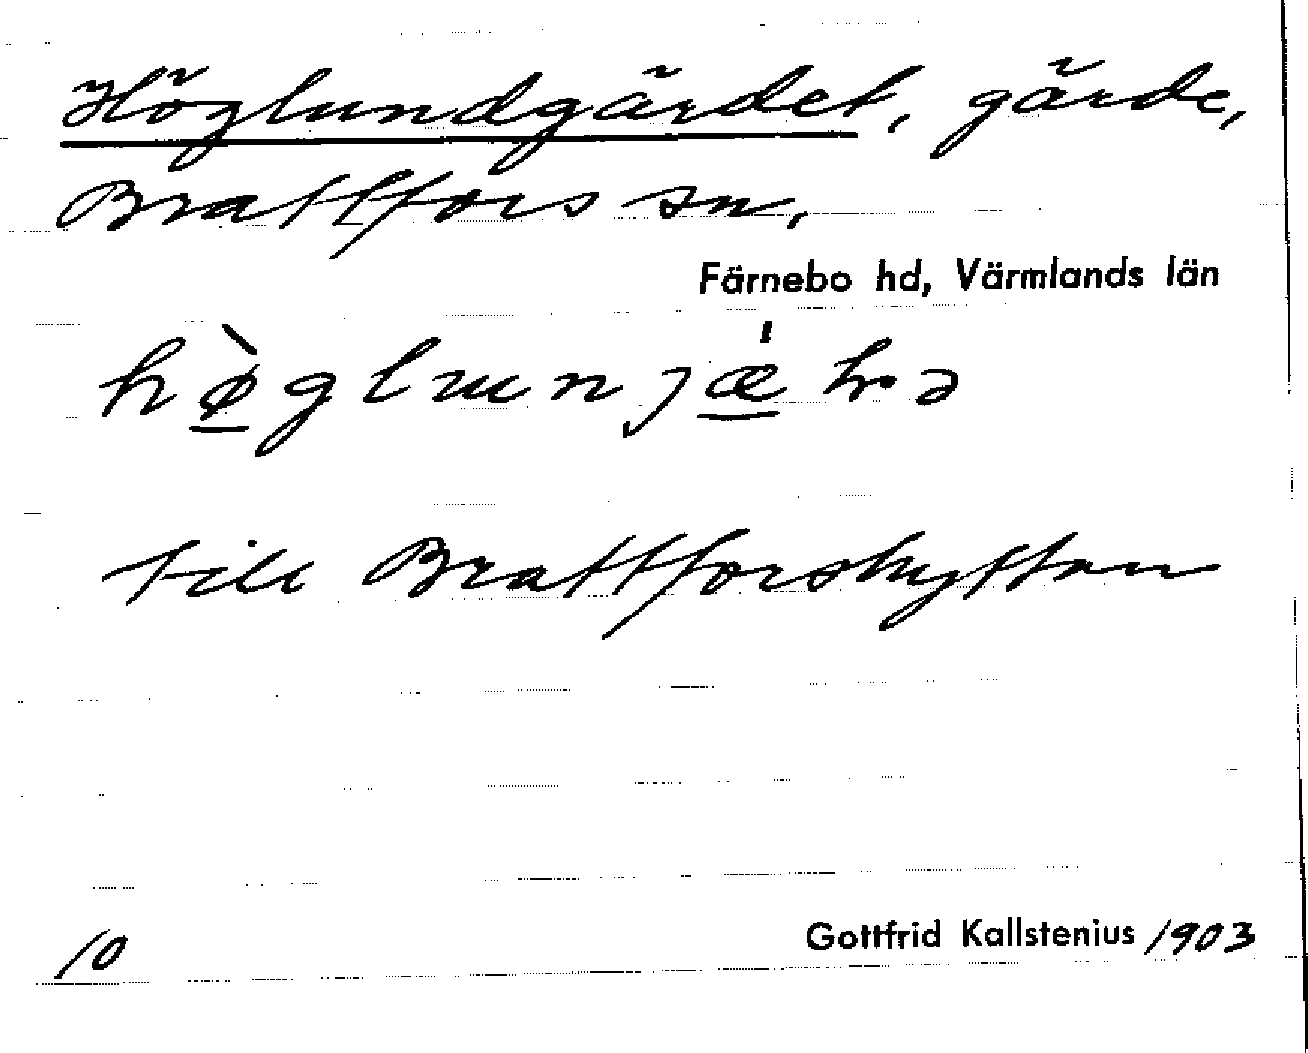 Höglundgärdet, gärde,
Brattfors sn.
Färnebo hd, Värmlands län
till Brattforshyttan
10 Gottfrid Kallstenius 1903